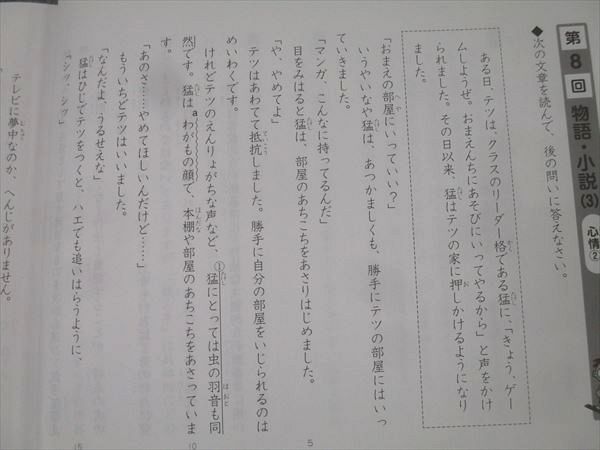 第8回 物語・小説(3) 心情②
◆次の文章を読んで、後の問いに答えなさい。
ある日、テツは、クラスのリーダー格である猛に、「きょう、ゲー
ムしようぜ。おまえんちにあそびにいってやるから」と声をかけ
られました。その日以来、猛はテツの家に押しかけるようになり
ました。
「おまえの部屋にいっていい?」
いうやいなや猛は、あつかましくも、勝手にテツの部屋にはいっ
ていきました。
「マンガ、こんなに持ってるんだ」
目をみはると猛は、部屋のあちこちをあさりはじめました。
「や、やめてよ」
テツはあわてて抵抗しました。勝手に自分の部屋をいじられるのは
めいわくです。
けれどテツのえんりょがちな声など、①猛にとっては虫の羽音も同
然です。猛はaわがもの顔で、本棚や部屋のあちこちをあさっていま
す。
「あのさ……やめてほしいんだけど……」
もういちどテツはいいました。
「なんだよ、うるせえな」
猛はひじでテツをつくと、ハエでも追いはらうように、
「シッ、シッ」
テレビに夢中なのか、へんじがありません。
5
10
15